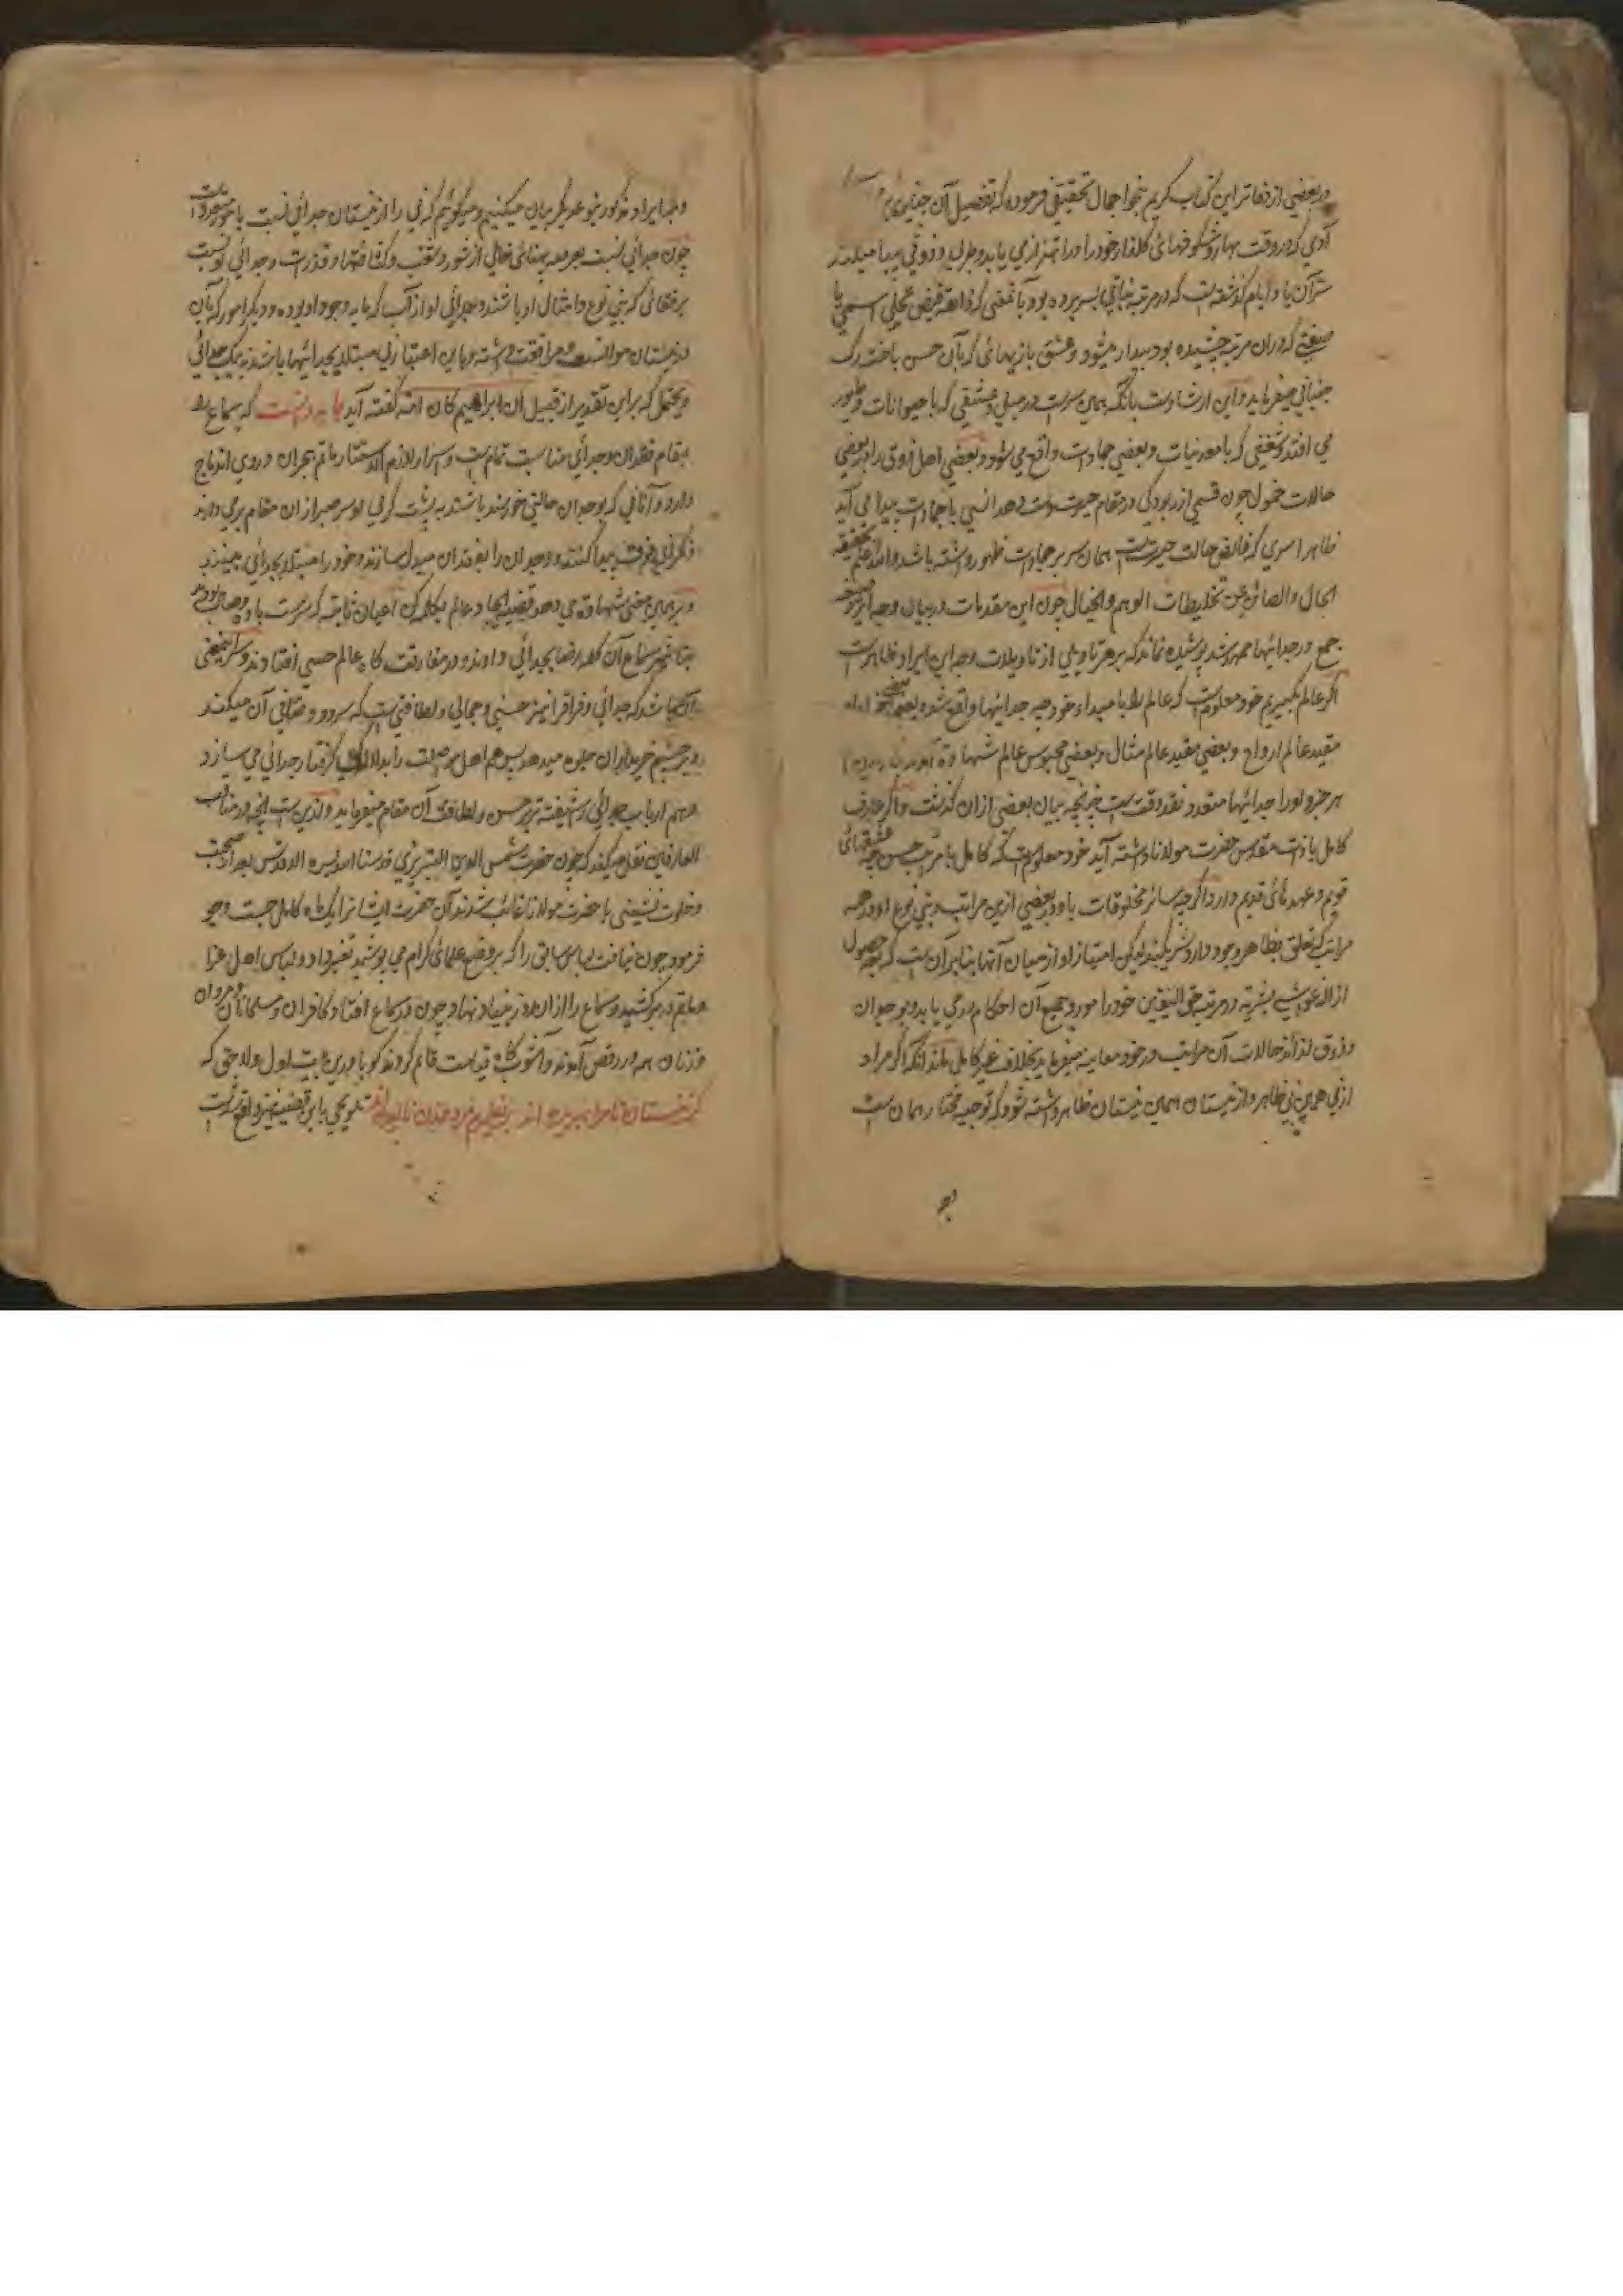 در بعضی از دفاتر این کتاب کریم بنحو اجمال تحقیقی فرموده که تفصیل آن چنین
آدمی که در وقت بهار و شکوفهائی کلذار خود را در اهتزاز می یابد و طرب و ذوقی پیدا میکند
سر آن یاد ایام گذشته است که در مرتبه نباتی بسر برده بود با نمعنی که ذائقه فیض تجلی اسمی یا
صفتی که در ان مرتبه چشیده بود بیدار میشود و عشق بازیهائی که بآن حسن باخته رک
جنبانی میفرماید و این ارشاد است بانکه همین سرست در میل و عشقی که با حیوانات و طیور
می افتد و شغفی که با معدنیات و بعضی جمادات واقع می شود و بعضی اهل ذوق را در بعضی
حالات خمول چون قسمی از ربودکی در مقام حیرت دست دهد انسی با جمادات پیدا می آید
ظاهرا سری که فایض حالت حیرتست همان سر بر جمادات ظهور داشته باشد والله اعلم بحقیقة
الحال والصائن عن تخلیطات الوهم والخیال چون این مقدمات در بیان وجه ایراد صیغه
جمع در جدائیها ممهد شد پوشیده نماند که بر هر تاویلی از تاویلات وجه این ایراد ظاهرست
اکر عالم بکیریم خود معلومست که عالم را با مبداء خود چه جدائیها واقع شده
مقید عالم ارواح و بعضی مقید عالم مثال و بعضی محبوس عالم شهادة
هر جزو او را جدائیها متعدد نقد وقت ست چنانچه بیان بعضی ازان کذشت و اکر عارف
کامل یا ذات مقدس حضرت مولانا داشته آید خود معلومست که کامل با مرتب حسن چه عشقهائی
قویم و عهدهائی قدیم دارد اکرچه سائر مخلوقات با او در بعضی ازین مراتب و بنی نوع او در همه
مراتب که تعلق بظاهر وجود دارد شریکند لیکن امتیاز او از میان آنها بنابر آن ست که بعد حصول
ازاله غواشی بشریه در مرتبه حق الیقین خود را مورد جمیع آن احکام می یابد و بوجدان
و ذوق لذائذ حالات آن مراتب در خود معاینه میفرماید بخلاف غیر کامل اکر مراد
از نی همین نی ظاهر و از نیستان همین نیستان ظاهر داشته شود که توجیه مختار همان ست
وجه ایراد مذکور بنوعدیکر بیان میکنیم و میکوئیم که نی را از نیستان جدائی نسبت با امور متعدد است
چون جدائی نسبت بعرصه پهنائی خالی از شور و شغب و کثافتها و قذرات و جدائی او نسبت
برفقائی که بنی نوع و امثال او باشند و جدائی او از آب که مایه وجود او بوده و دیکر امور که بآن
در نیستان موانست و مرافقت داشته و باین اعتبار نی مبتلا بجدائیها باشد نه بیک جدائی
و یحتمل که براین تقدیر از قبیل ان ابراهیم کان امة کفته آید باید دانست که سماع را
بمقام فقدان و جدائی مناسبت تمام ست و اسرار لازم الاستتار ماتم هجران در وی اندماج
دارد و آنانی که بوجدان حالتی خورسند باشند به پشت کرمی او سر صبر از ان مقام بر می دارند
ذکر نی فوق پیدا کنند و وجدان را بفقدان مبدل سازند و خود را مبتلا بجدائی بینند
و بر همین معنی شهادة می دهد قضیه ایجاد عالم بکلمه کن اعیان ثابته که سرمست باده وصال بودند
بنا بر سماع آن کلمه رضا بجدائی دادند و در مفارقت کاه عالم حسی افتادند و سر این معنی
آن باشد که جدائی و فراق را نیز حسنی و جمالی و لطافتی ست که سرود وصافی آن میکند
و در چشم خریداران جلوه میدهد پس هم اهل مواصلت را بدلالکی کرفتار جدائی می سازد
و هم ارباب جدائی را شیفته تر بر حسن و لطافت آن مقام میفرماید و ازین ست انچه در مناقب
العارفین نقل میکند که چون حضرت شمس الدین التبریزی قدسنا الله بسره الاقدس بعد از صحبت
و خلوت نشینی با حضرت مولانا غائب شدند آن حضرت ایشانرا یک ماه کامل جست و جو
فرمود چون نیافت لباس سابق را که بر وضع علمائی کرام می پوشید تغیر داد و لباس اهل عزا
و ماتم در بر کشید و سماع را ازان روز بنیاد نهاد و چون در سماع افتاد کافران و مسلمانان و مردان
و زنان همه در رقص آمدند و آشوب کاه قیامت قائم کردند کویا در این بیت اول ولا حتی که
کز نیستان تا مرا ببریده اند از نفیرم مرد و زن نالیده اند تلویحی باین قضیه نیز واقع شدست